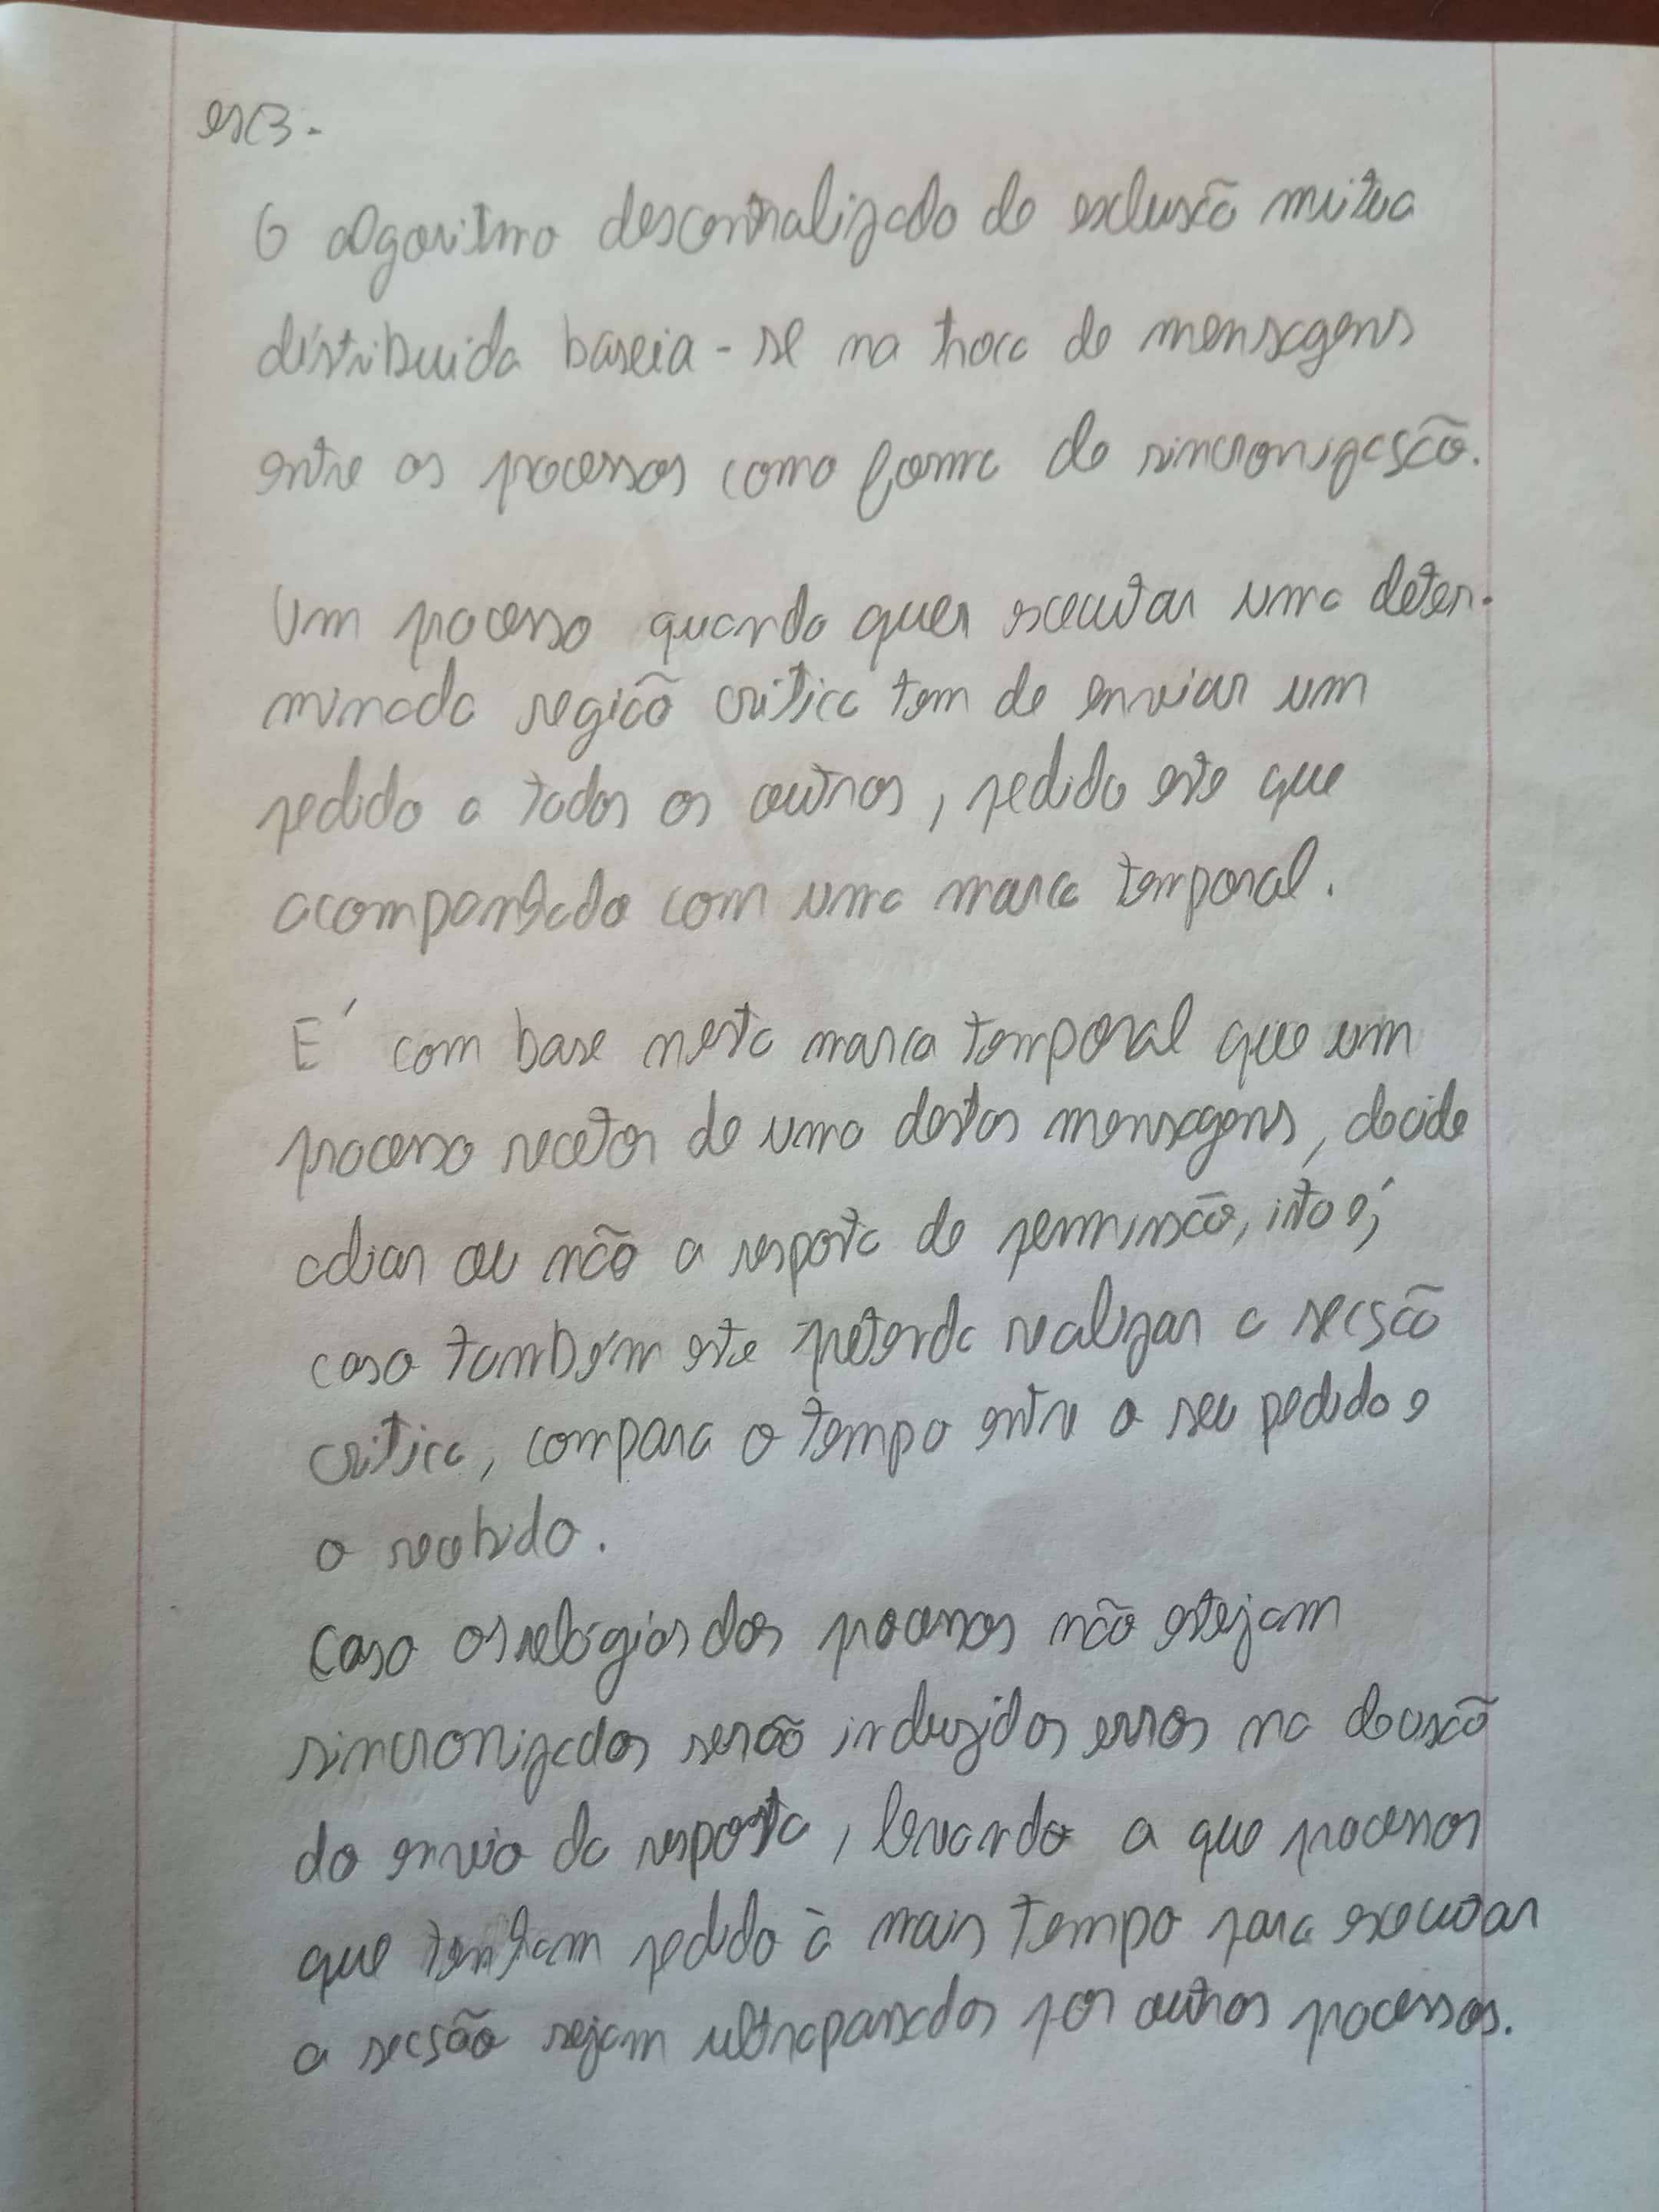 ex3.
O algoritmo descentralizado de exclusão mútua
distribuida baseia-se na troca de mensagens
entre os processos como forma de sincronização.
Um processo quando quer executar uma deter-
minada região critica tem de enviar um
pedido a todos os outros, pedido este que
acompanhado com uma marca temporal.
E´ com base nesta marca temporal que um
processo recetor de uma destas mensagens, decide
adiar ou não a resposta de permissão, isto é,
caso também este pretenda realizar a secsão
critica, compara o tempo entre o seu pedido e
o recebido.
Caso os relógios dos processos não estejam
sincronizados serão induzidos erros na decisão
do envio da resposta, levando a que processos
que tenham pedido à mais tempo para executar
a secsão sejam ultrapassados por outros processos.